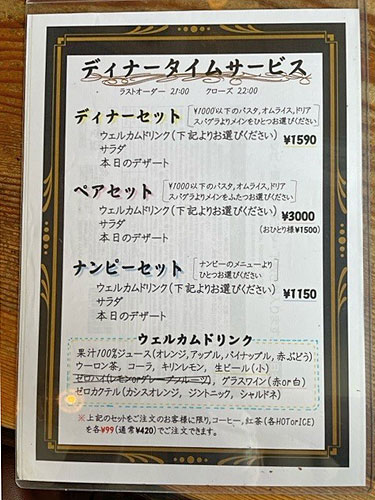 ディナータイムサービス
ラストオーダー 21:00 クローズ 22:00
ディナーセット
¥1000以下のパスタ,オムライス,ドリア
スパグラよりメインをひとつお選びください
ウェルカムドリンク(下記よりお選びください)
サラダ
本日のデザート
¥1590
ペアセット
¥1000以下のパスタ,オムライス,ドリア
スパグラよりメインをふたつお選びください
ウェルカムドリンク(下記よりお選びください)
サラダ
本日のデザート
¥3000
(おひとり様¥1500)
ナンピーセット
ナンピーのメニューより
ひとつお選びください
ウェルカムドリンク(下記よりお選びください)
サラダ
本日のデザート
¥1150
ウェルカムドリンク
果汁100%ジュース(オレンジ,アップル,パイナップル,赤ぶどう)
ウーロン茶, コーラ, キリンレモン, 生ビール(小)
ゼロハイ(レモンorグレープフルーツ), グラスワイン(赤or白)
ゼロカクテル(カシスオレンジ, ジントニック, シャルドネ)
※上記のセットをご注文のお客様に限り,コーヒー,紅茶(各HOTorICE)
を各¥99(通常¥420)でご注文できます。